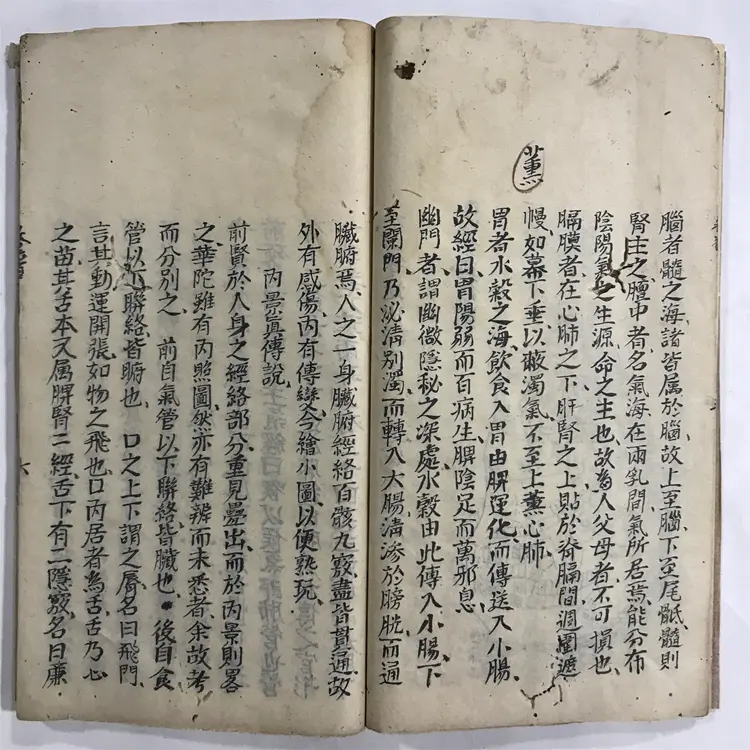 薰
腦者髓之海諸皆属於腦故上至腦下至尾骶髓則
腎主之膻中者名氣海在兩乳間氣所居焉能分布
陰陽氣之生源命之主也故爲人父母者不可損也
膈膜者在心肺之下肝腎之上貼於脊膈間週圍遮
幔如幕下垂以蔽濁氣不至上薰心肺
胃者水穀之海飲食入胃由脾運化而傳送入小腸
故經曰胃陽弱而百病生脾陰足而萬邪息
幽門者謂幽微隱秘之深處水穀由此傳入小腸下
至闌門乃泌清別濁而轉入大腸清渗於膀胱而通
臟腑焉人之一身臟腑經絡百骸九竅盡皆貫通故
外有感傷內有傳變今繪小圖以便熟玩
內景真傳說
前賢於人身之經絡部分重見疊出而於內景則畧
之華陀雖有內照圖然亦有難辨而未悉者余故考
而分別之 前自氣管以下聯絡皆臟也 後自食
管以下聯絡皆腑也 口之上下謂之唇名曰飛門
言其動運開張如物之飛也口內居者為舌舌乃心
之苗其舌本又属脾腎二經舌下有二隱竅名曰廉